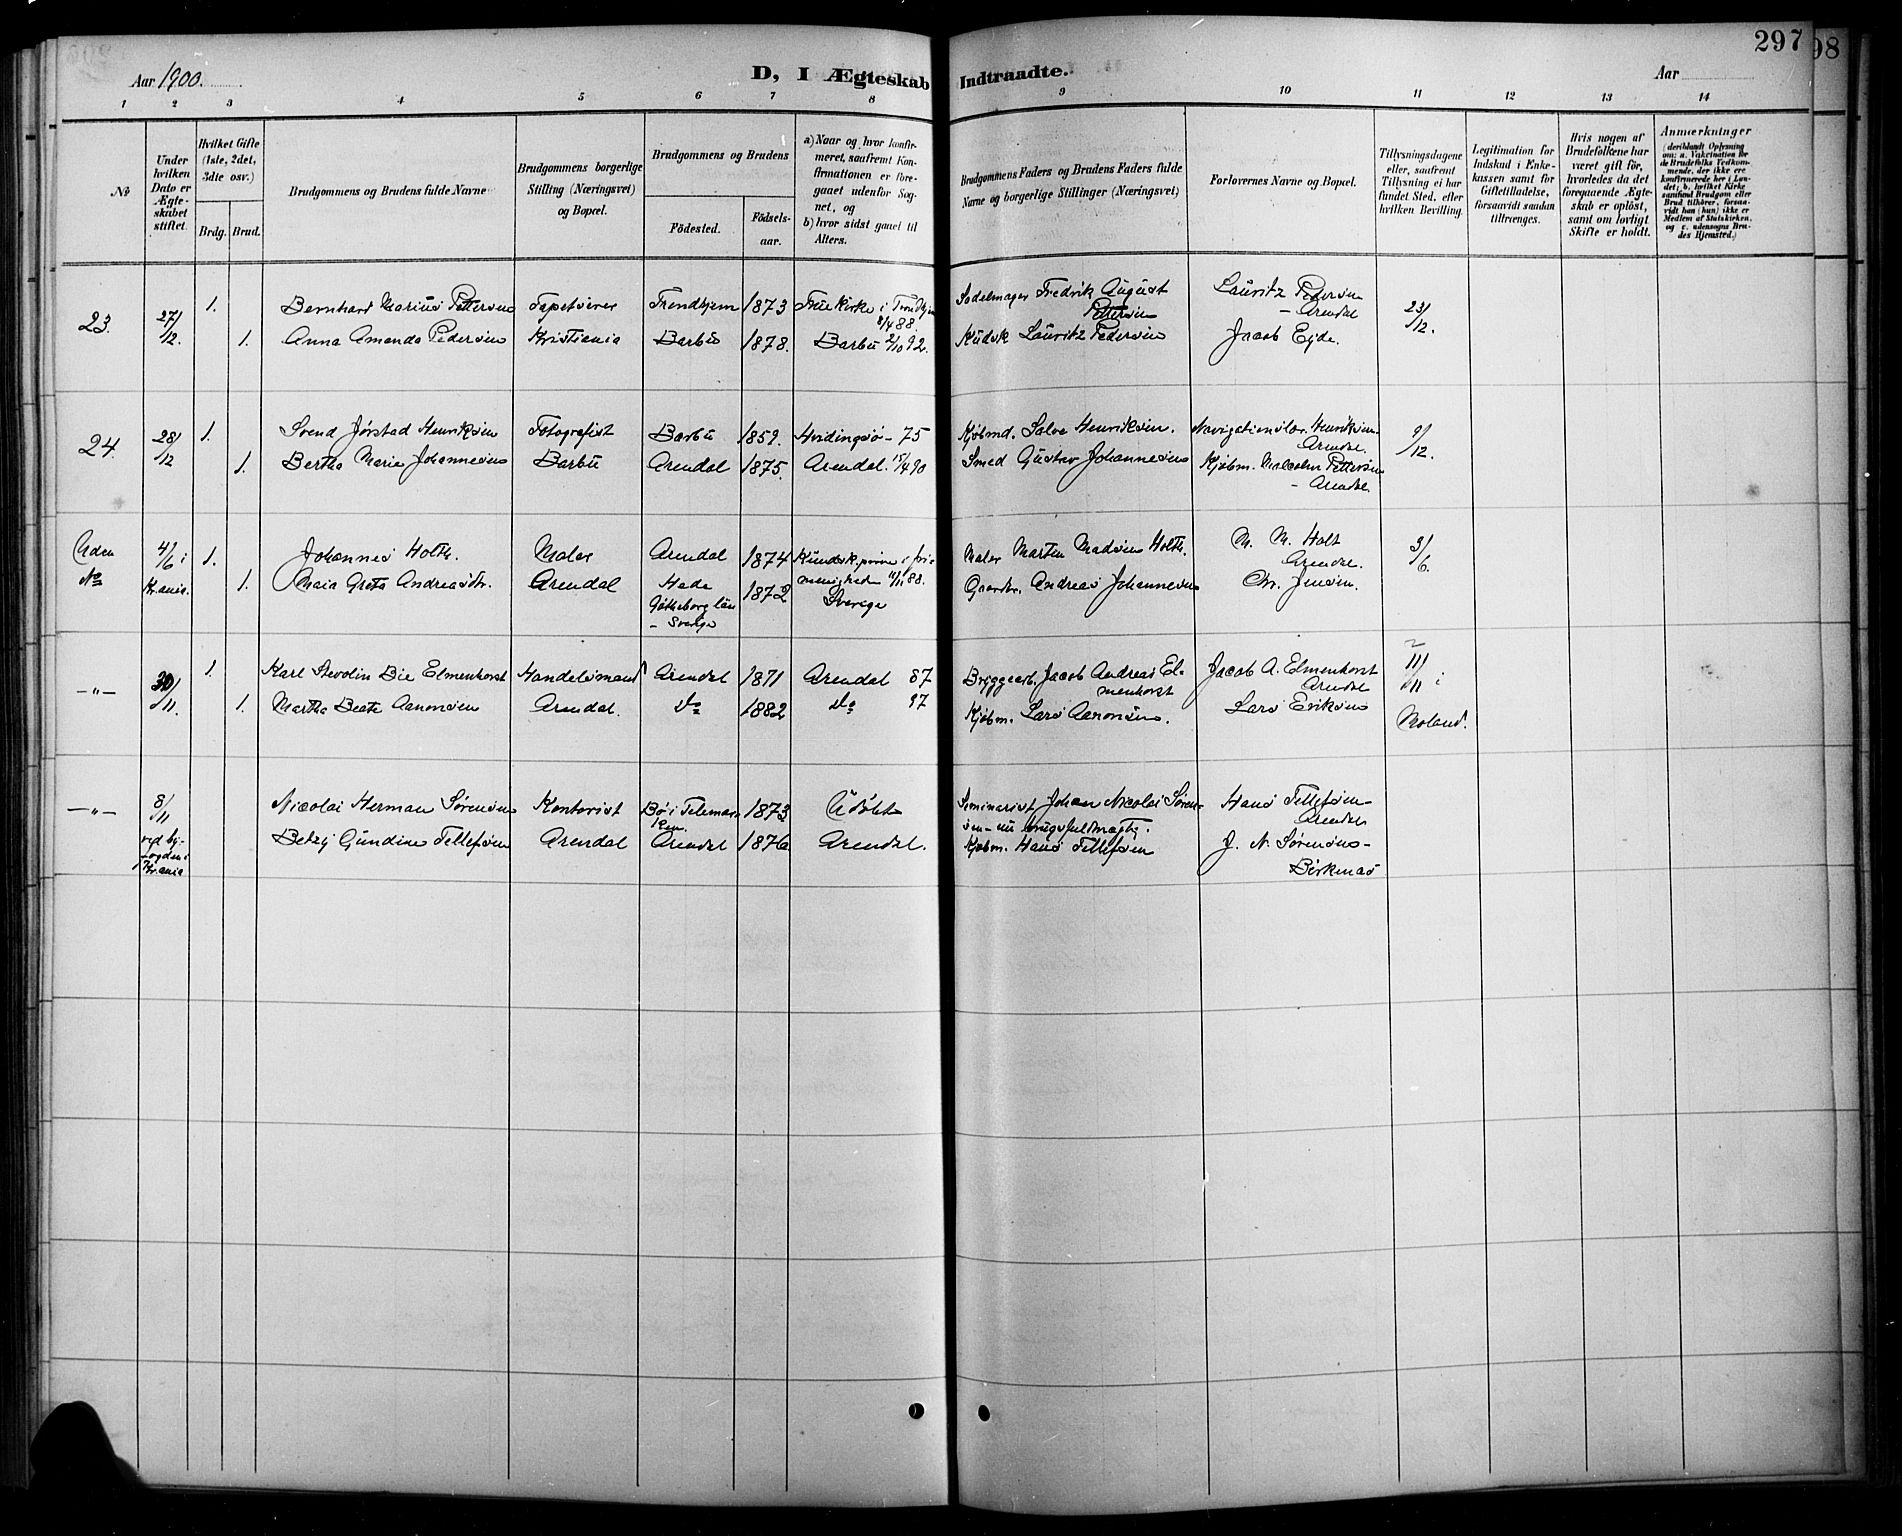 297
98
Aar 1900.
D, I Ægteskab Indtraadte.
Aar
1 2 3 4 5 6 7 8 9 10 11 12 13 14
No
Under hvilken Dato er Ægteskabet stiftet.
Hvilket Gifte (1ste, 2det, 3die osv.)
Brdg. Brud.
Brudgommens og Brudens fulde Navne
Brudgommens borgerlige Stilling (Næringsvei) og Bopæl.
Brudgommens og Brudens
Födested.
Födsels-aar.
a) Naar og hvor konfirmeret, saafremt Konfirmationen er foregaaet udenfor Sognet, og
b) hvor sidst gaaet til Alters.
Brudgommens Faders og Brudens Faders fulde Navne og borgerlige Stillinger (Næringsvei)
Forlovernes Navne og Bopæl.
Tillysningsdagene eller, saafremt Tillysning ei har fundet Sted, efter hvilken Bevilling.
Legitimation for Indskud i Enkekassen samt for Giftetilladelse, forsaavidt saadan tiltrænges.
Hvis nogen af Brudefolkene har været gift før, hvorledes da det foregaaende Ægteskab er oplöst, samt om lovligt Skifte er holdt.
Anmærkninger
(deriblandt Oplysning om: a. Vakcination for de Brudefolks Vedkommende, der ikke ere konfirmerede her i Landet; b. hvilket Kirkesamfund Brudgom eller Brud tilhörer, forsaavidt han (hun) ikke er Medlem af Statskirken, og c. udensogns Brudes Hjemsted.)
23. 27/12. 1. Bernhard Marius Pettersen Tapetserer Trondhjem 1873 Frue Kirke i Trondhjem 8/4 88. Sadelmager Fredrik August Pettersen Lauritz Pedersen - Arendal 23/12.
1. Anna Amanda Pedersen Kristiania Barbu 1878. Barbu 2/10 92. Kudsk Lauritz Pedersen Jacob Eyde.
24. 28/12 1. Svend Jørstad Henriksen Fotografist Barbu 1859. Hvidingsø - 75 Kjøbmd. Salve Henriksen. Navigationslær. Henriksen - Arendal. 9/12.
1. Bertha Marie Johannesen Barbu Arendal 1875. Arendal. 15/4 90 Smed Gustav Johannesen Kjøbm. Malcolm Pettersen - Arendal.
Uden No 4/6 i Kr.ania. 1. Johannes Holth. Maler Arendal 1874 Maler Marten Madsen Holth. M. M. Holt Arendal. 3/6.
1. Maia Greta Andreasdr. Arendal Hede Gøtheborg län - Sverige 1872 11/11 88. Sverige Gaardbr. Andreas Johannesen Chr. Jensen.
-"- 30/11. 1. Karl Stevelin Bie Elmenhorst Handelsmand Arendal 1871 Arendal 87 Bryggearb. Jacob Andreas Elmenhorst Jacob A. Elmenhorst Arendal 11/11 i
1. Martha Beate Aanonsen Arendal. do 1882 do 97 Kjøbm. Lars Aanonsen. Lars Eriksen Moland.
-"- 8/11 Nicolai Herman Sørensen Kontorist Bø i Telemarken 1873 Udøbt Seminarist Johan Nicolai Sørensen - nu brugsfuldmægtig. Hans Tellefsen - Arendal
ved byfogden i Kr.ania Betzy Gundine Tellefsen Arendal Arendal 1876. Arendal. Kjøbm. Hans Tellefsen J. N. Sørensen - Birkenæs